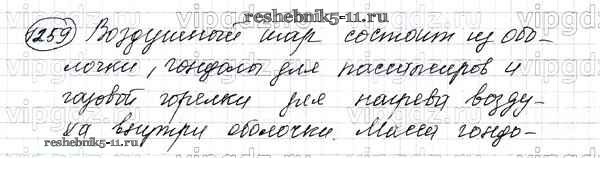 reshebnik5-11.ru
1259 Воздушный шар состоит из обо-
лочки, гондолы для пассажиров и
газовой горелки для нагрева возду-
ха внутри оболочки. Масса гондо-
reshebnik5-11.ru